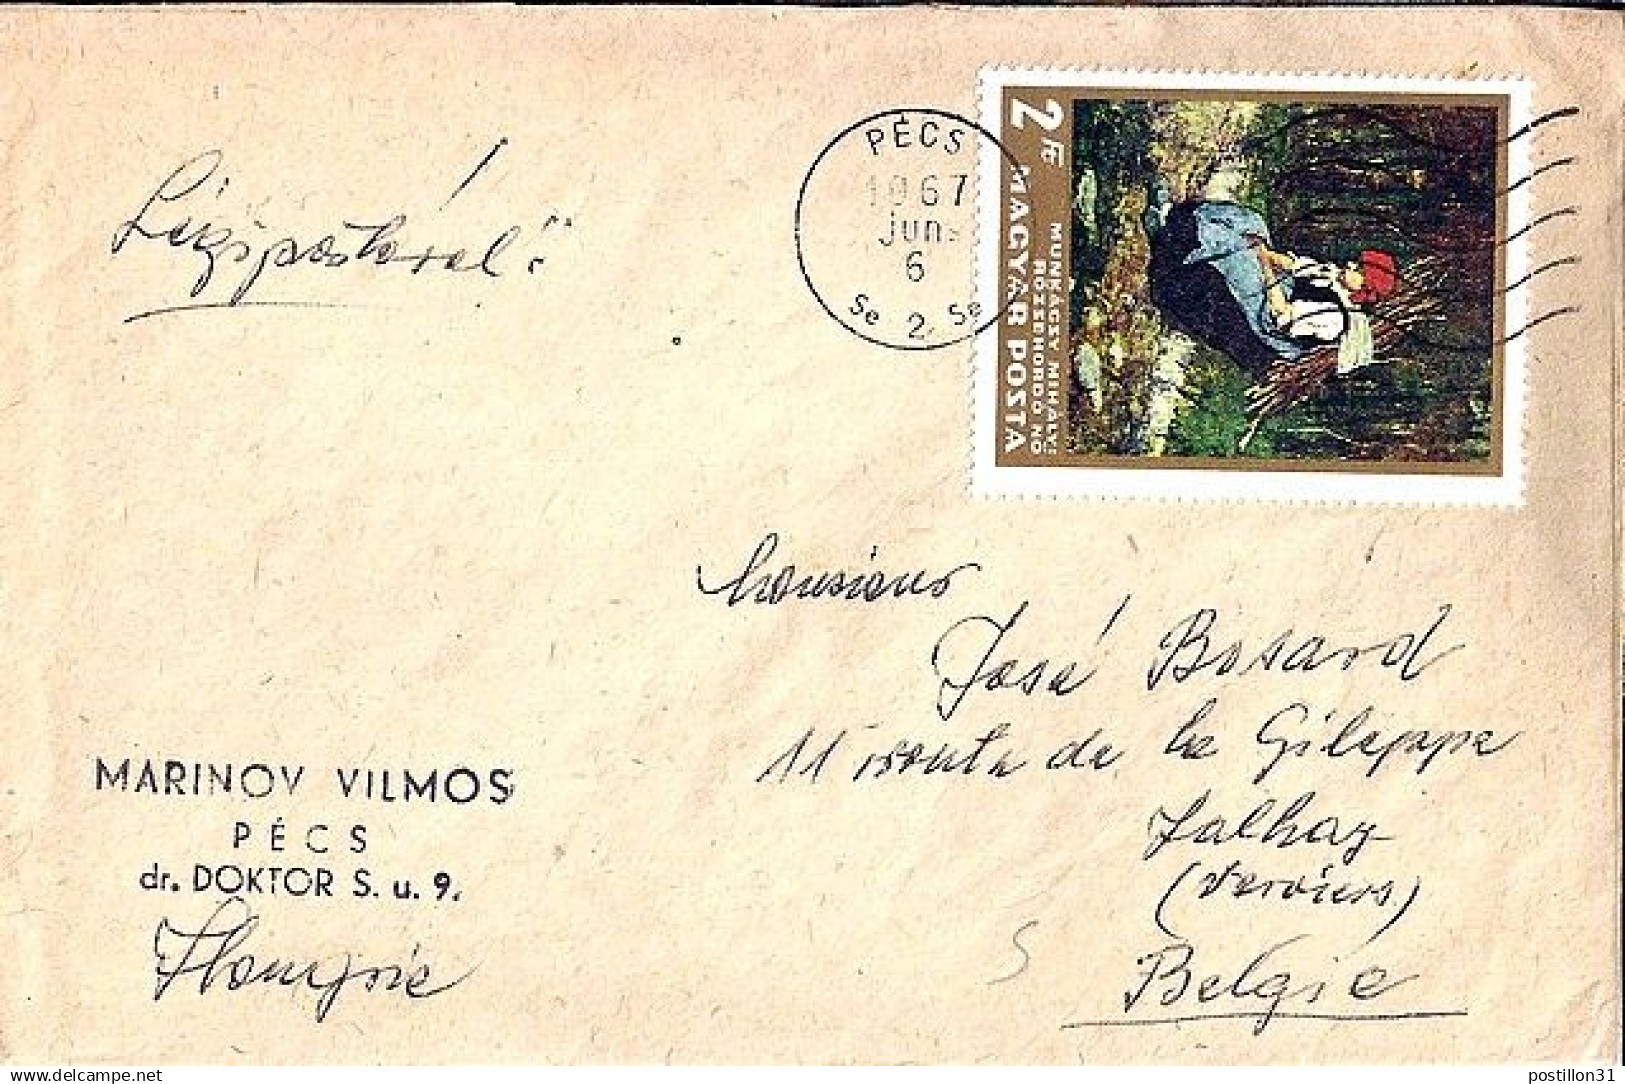 Légipostával!
PÉCS
1967
jun.
6
Se 2 Se
2 Ft
MAGYAR POSTA
MUNKÁCSY MIHÁLY:
RŐZSEHORDÓ NŐ
Monsieur
José Bosard
11 route de la Gileppe
Jalhay
(Verviers)
Belgie
MARINOV VILMOS
PÉCS
dr. DOKTOR S. u. 9.
Hongrie
postillon31